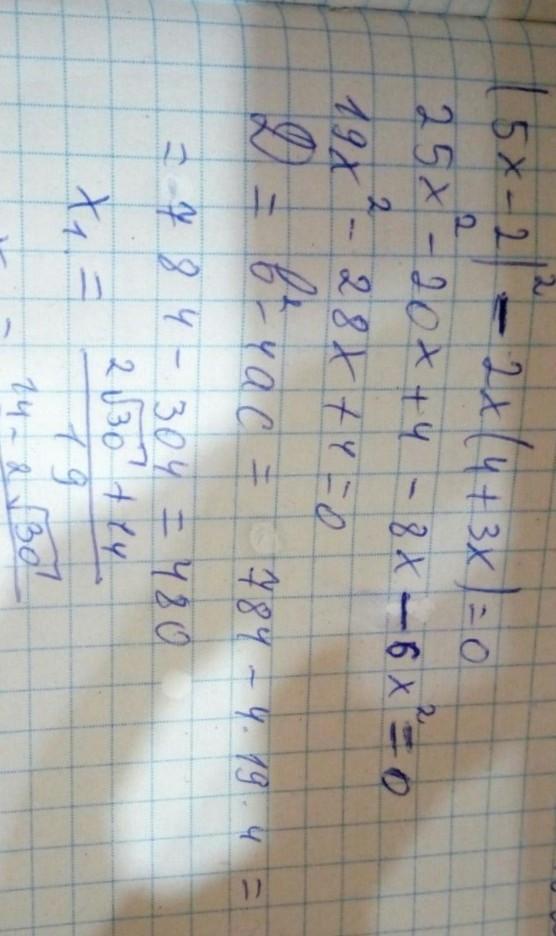 (5x-2)² - 2x(4+3x)=0
25x²-20x+4-8x-6x²=0
19x²-28x+4=0
D = b²-4ac = 784-4·19·4=
= 784-304=480
x₁ = (2√30+14)/19
14-2√30